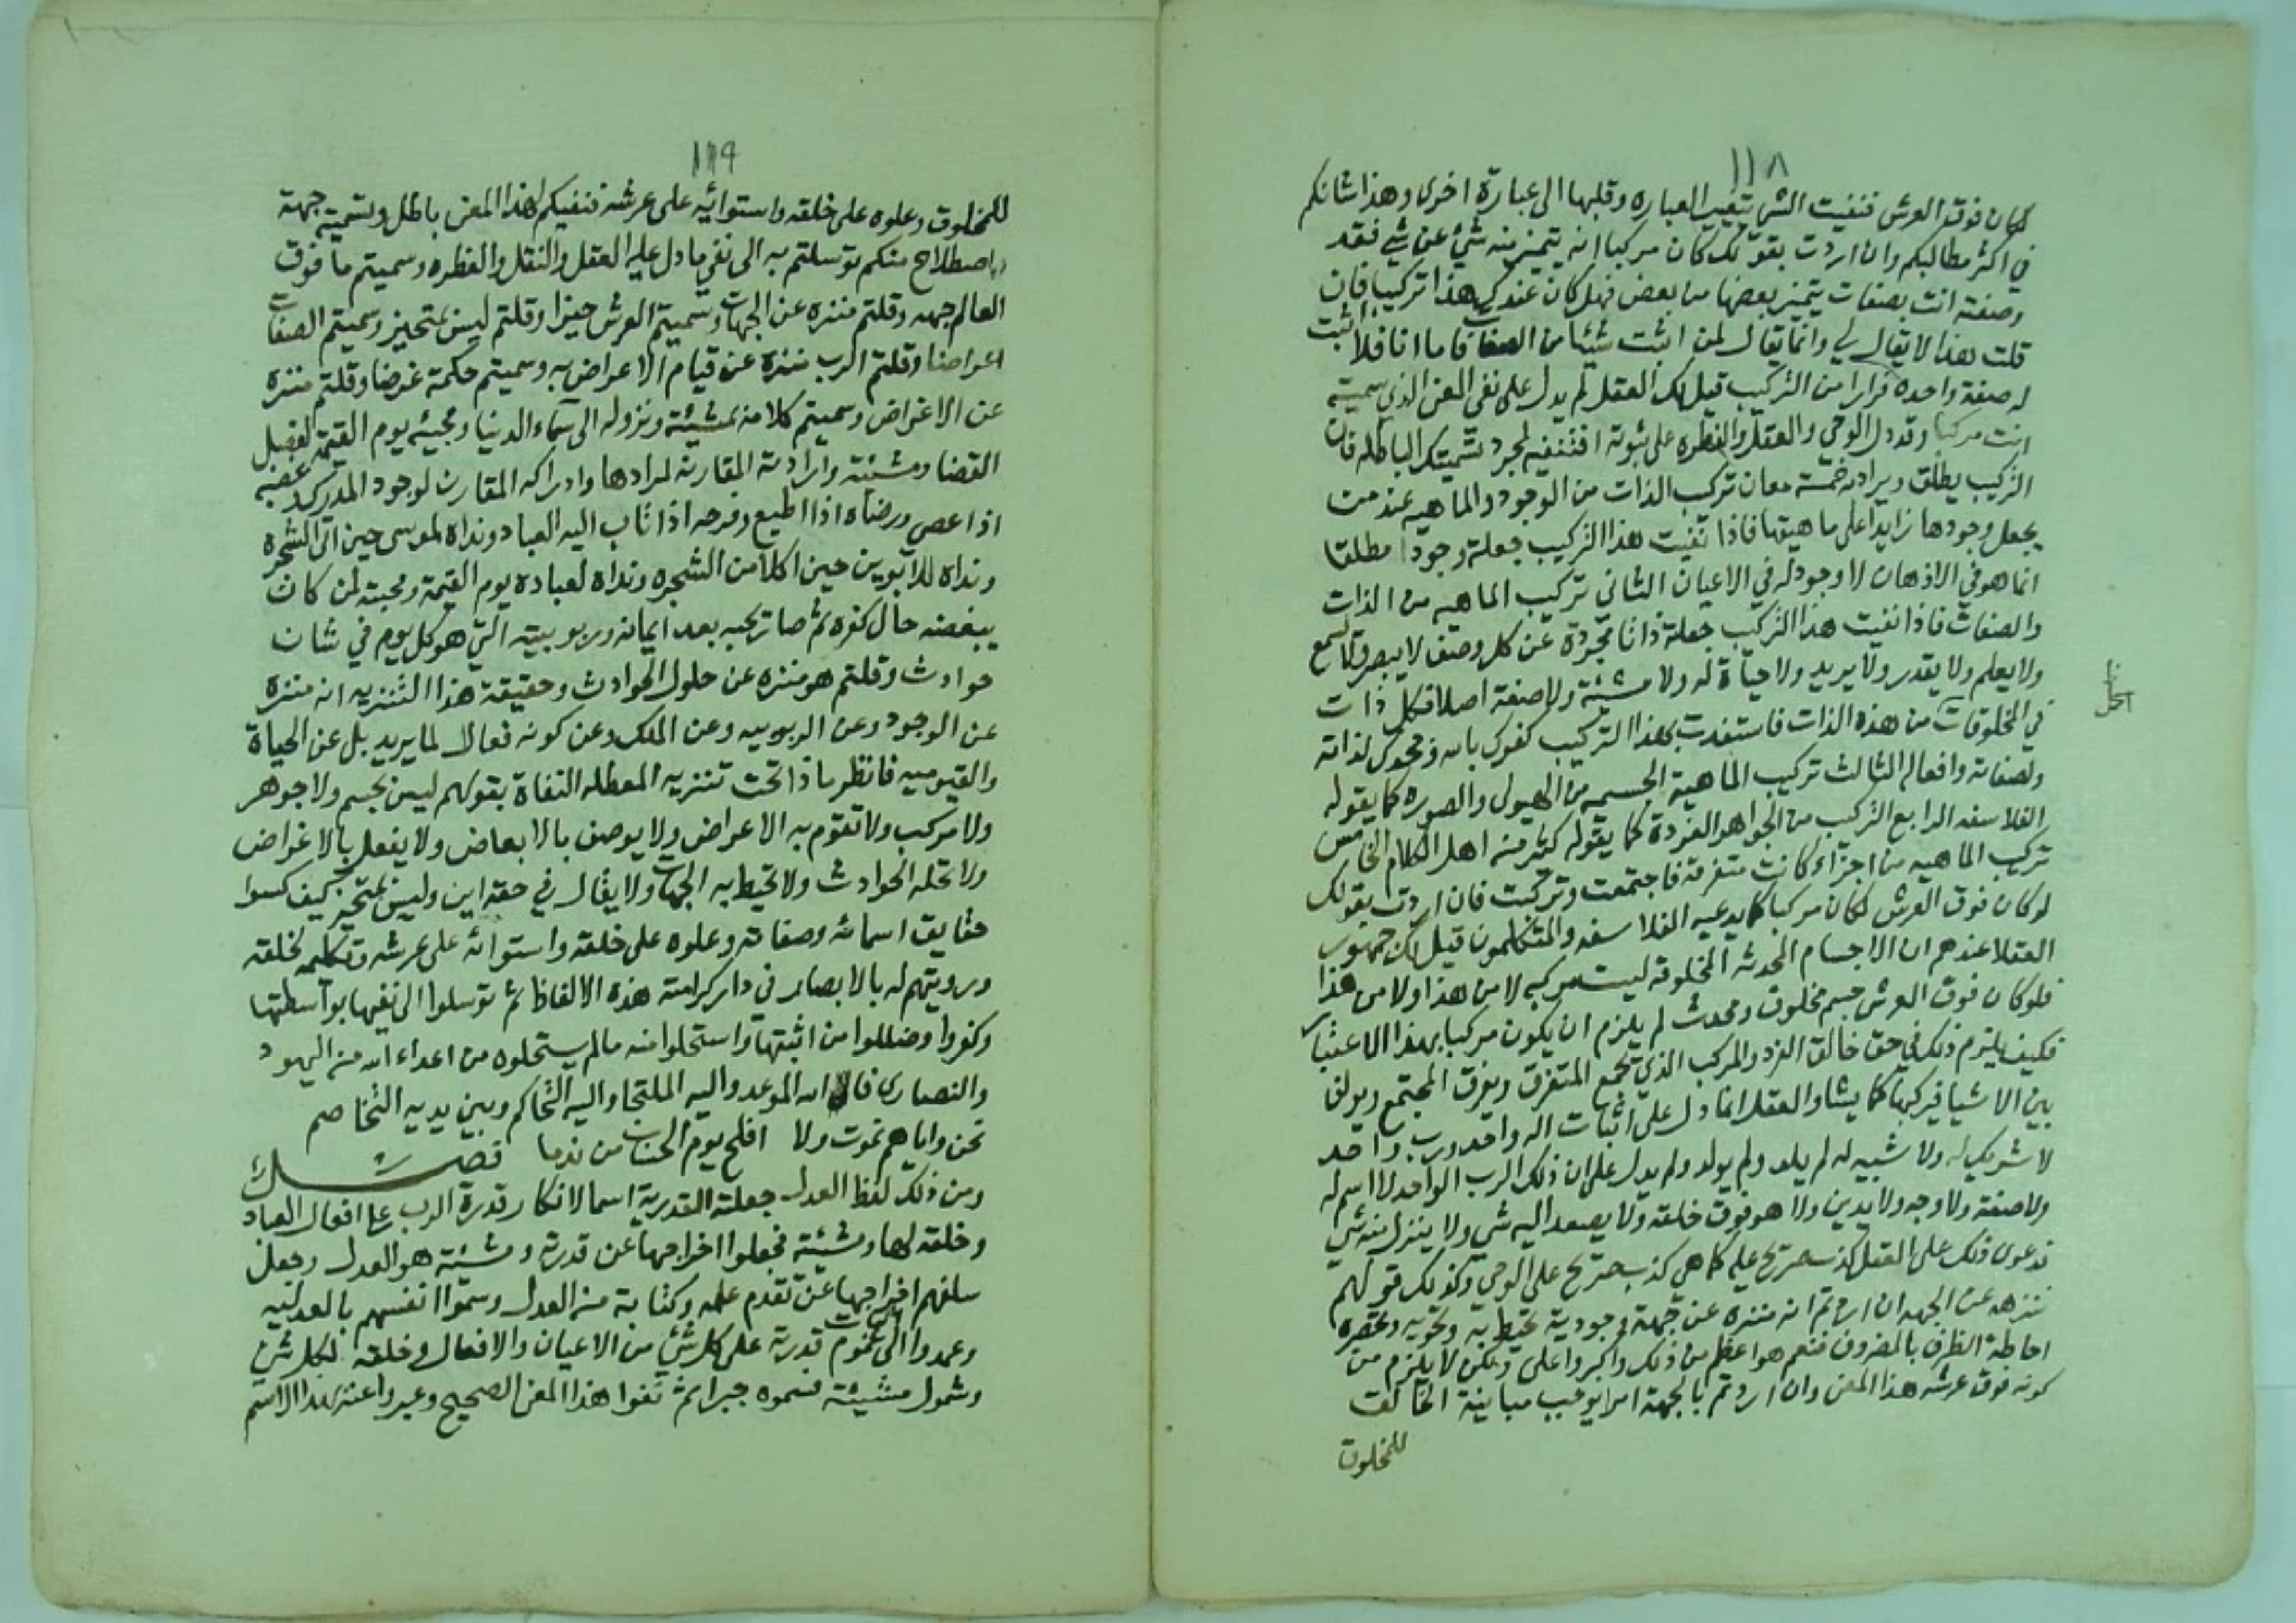 ١١٨
لكان فوق العرش فنفيت الشي بتغيير العباره وقلبها الى عبارة اخرى وهذا شانكم
في اكثر مطالبكم وان اردت بقولك كان مركبا انه يتميز منه شيئ عن شي فقد
وصفته انت بصفات يتميز بعضها من بعض فهل كان عندك هذا تركيبا فان
قلت هذا لا يقال لي وانما يقال لمن اثبت شيئا من الصفات فاما انا فلا اثبت
له صفة واحده فرارا من التركيب قيل لك العقل لم يدل على نفي المعنى الذي سميته
انت مركبا وقد دل الوحي والعقل والفطره على ثبوته افتنفيه لمجرد تسميتك الباطله فان
التركيب يطلق ويراد به خمسة معان تركيب الذات من الوجود والماهيه عند من
يجعل وجودها زايدا على ماهيتها فاذا نفيت هذا التركيب جعلته وجودا مطلقا
انما هو في الاذهان لا وجود له في الاعيان الثاني تركيب الماهيه من الذات
والصفات فاذا نفيت هذا التركيب جعلته ذاتا مجردة عن كل وصف لا يبصر ولا يسمع
ولا يعلم ولا يقدر ولا يريد ولا حياة له ولا مشيئة ولا صفة اصلا فكل ذات
في المخلوقات من هذه الذات فاستفدت بهذا التركيب كفرك بالله وجحدك لذاته
ولصفاته وافعاله الثالث تركيب الماهية الجسميه من الهيولى والصوره كما يقوله
الفلاسفه الرابع التركيب من الجواهر الفردة كما يقوله كثير من اهل الكلام الخامس
تركيب الماهيه من اجزاء كانت متفرقه فاجتمعت وتركبت فان اردت بقولك
لو كان فوق العرش لكان مركبا كما يدعيه الفلاسفه والمتكلمون قيل لك جمهور
العقلا عندهم ان الاجسام المحدثه المخلوقه ليست مركبه لا من هذا ولا من هذا
فلو كان فوق العرش جسم مخلوق ومحدث لم يلزم ان يكون مركبا بهذا الاعتبار
فكيف يلزم ذلك في حق خالق الفرد والمركب الذي يجمع المتفرق ويفرق المجتمع ويولف
بين الاشيا فيركبها كما يشا والعقل انما دل على اثبات اله واحد ورب واحد
لا شريك له ولا شبيه له لم يلد ولم يولد ولم يدل على ان ذلك الرب الواحد لا اسم له
ولا صفة ولا وجه ولا يدين ولا هو فوق خلقه ولا يصعد اليه شي ولا ينزل منه شي
فدعوى ذلك على العقل كذب صريح عليه كما هي كذب صريح على الوحي وكذلك قولهم
ننزهه عن الجهه ان اردتم انه منزه عن جهة وجودية تحيط به وتحويه وتحصره
احاطة الظرف بالمظروف فنعم هو اعظم من ذلك واكبر واعلى ولكن لا يلزم من
كونه فوق عرشه هذا المعنى وان اردتم بالجهة امرا يوجب مباينة الخالق
للمخلوق
١١٩
للمخلوق وعلوه على خلقه واستوائه على عرشه فنفيكم لهذا المعنى باطل وتسميته جهة
اصطلاح منكم توسلتم به الى نفي ما دل عليه العقل والنقل والفطره وسميتم ما فوق
العالم جهه وقلتم منزه عن الجهات وسميتم العرش حيزا وقلتم ليس بمتحيز وسميتم الصفات
اعراضا وقلتم الرب منزه عن قيام الاعراض به وسميتم حكمته غرضا وقلتم منزه
عن الاغراض وسميتم كلامه بمشيئته ونزوله الى سماء الدنيا ومجيئه يوم القيمة لفصل
القضا ومشيئته وارادته المقارنه لمرادها وادراكه المقارن لوجود المدرك وغضبه
اذا عصي ورضاه اذا اطيع وفرحه اذا تاب اليه العباد ونداه لموسى حين اتى الشجرة
ونداه للابوين حين اكلا من الشجره ونداه لعباده يوم القيمة ومحبته لمن كان
يبغضه حال كفره ثم صار يحبه بعد ايمانه وربوبيته التي هو كل يوم في شان
حوادث وقلتم هو منزه عن حلول الحوادث وحقيقة هذا التنزيه انه منزه
عن الوجود وعن الربوبيه وعن الملك وعن كونه فعالا لما يريد بل عن الحياة
والقيوميه فانظر ماذا تحت تنزيه المعطله النفاة بقولهم ليس بجسم ولا جوهر
ولا مركب ولا تقوم به الاعراض ولا يوصف بالابعاض ولا يفعل بالاغراض
ولا تحله الحوادث ولا تحيط به الجهات ولا يقال في حقه اين وليس بمتحيز كيف كسوا
حقايق اسمائه وصفاته وعلوه على خلقه واستوائه على عرشه وتكليمه لخلقه
ورويتهم له بالابصار في دار كرامته هذه الالفاظ ثم توسلوا الى نفيها بواسطتها
وكفروا وضللوا من اثبتها واستحلوا منه مالم يستحلوه من اعداء الله من اليهود
والنصارى فالى الله الموعد واليه الملتجا واليه التحاكم وبين يديه التخاصم
نحن واياهم نموت ولا افلح يوم الحساب من ندما فصل
ومن ذلك لفظ العدل جعلته القدرية اسما لانكار قدرة الرب على افعال العباد
وخلقه لها ومشيئته فجعلوا اخراجها عن قدرته ومشيئته هو العدل وجعل
سلفهم اخراجها عن تقدم علمه وكتابته من العدل وسموا انفسهم بالعدليه
وعمدوا الى اثبات عموم قدرته على كل شيئ من الاعيان والافعال وخلقه لكل شيئ
وشمول مشيئته فسموه جبرا ثم نفوا هذا المعنى الصحيح وعبروا عنه بهذا الاسم